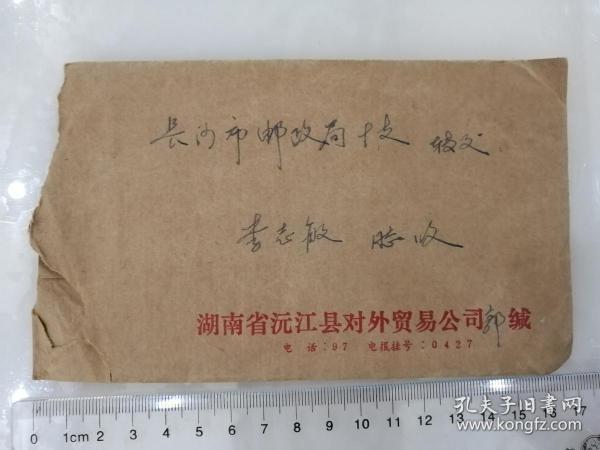 长沙市邮政局十支 转交
李志敏 同志收
湖南省沅江县对外贸易公司郭缄
电 话：97 电报挂号：0427
0 1cm 2 3 4 5 6 7 8 9 10 11 12 13 14 15 16 17
孔夫子旧书网
www.kongfz.com